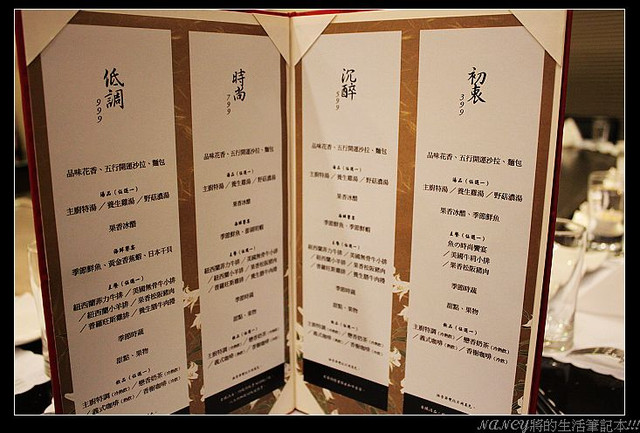 低調
999
品味花香、五行開運沙拉、麵包
湯品(任選一)
主廚特湯／養生雞湯／野菇濃湯
果香冰醋
海鮮饗宴
季節鮮魚、黃金香蕉蝦、日本干貝
主餐(任選一)
紐西蘭菲力牛排／美國無骨牛小排
／紐西蘭小羊排／果香松阪豬肉
／普羅旺斯雞排／養生膳牛肉捲
季節時蔬
甜點、果物
飲品(任選一)
主廚特調(冷熱飲)／戀香奶茶(冷熱飲)
／義式咖啡(熱飲)／香榭咖啡(冷熱飲)
時尚
799
品味花香、五行開運沙拉、麵包
湯品(任選一)
主廚特湯／養生雞湯／野菇濃湯
果香冰醋
海鮮饗宴
主餐(任選一)
紐西蘭菲力牛排／美國無骨牛小排
／紐西蘭小羊排／果香松阪豬肉
／普羅旺斯雞排／養生膳牛肉捲
季節時蔬
甜點、果物
飲品(任選一)
主廚特調(冷熱飲)／戀香奶茶(冷熱飲)
／義式咖啡(熱飲)／香榭咖啡(冷熱飲)
沉醉
599
品味花香、五行開運沙拉、麵包
湯品(任選一)
主廚特湯／養生雞湯／野菇濃湯
果香冰醋
海鮮饗宴
季節鮮魚、季節鮮蝦
主餐(任選一)
紐西蘭菲力牛排／美國無骨牛小排
／紐西蘭小羊排／果香松阪豬肉
／普羅旺斯雞排／養生膳牛肉捲
季節時蔬
甜點、果物
飲品(任選一)
主廚特調(冷熱飲)／戀香奶茶(冷熱飲)
／義式咖啡(熱飲)／香榭咖啡(冷熱飲)
初衷
399
品味花香、五行開運沙拉、麵包
湯品(任選一)
主廚特湯／養生雞湯／野菇濃湯
果香冰醋、季節鮮魚
主餐(任選一)
魚の時尚饗宴
／美國牛肩小排
／果香松阪豬肉
季節時蔬
甜點、果物
飲品(任選一)
主廚特調(冷熱飲)／戀香奶茶(冷熱飲)
／義式咖啡(熱飲)／香榭咖啡(冷熱飲)
NANCY將的生活筆記本!!!